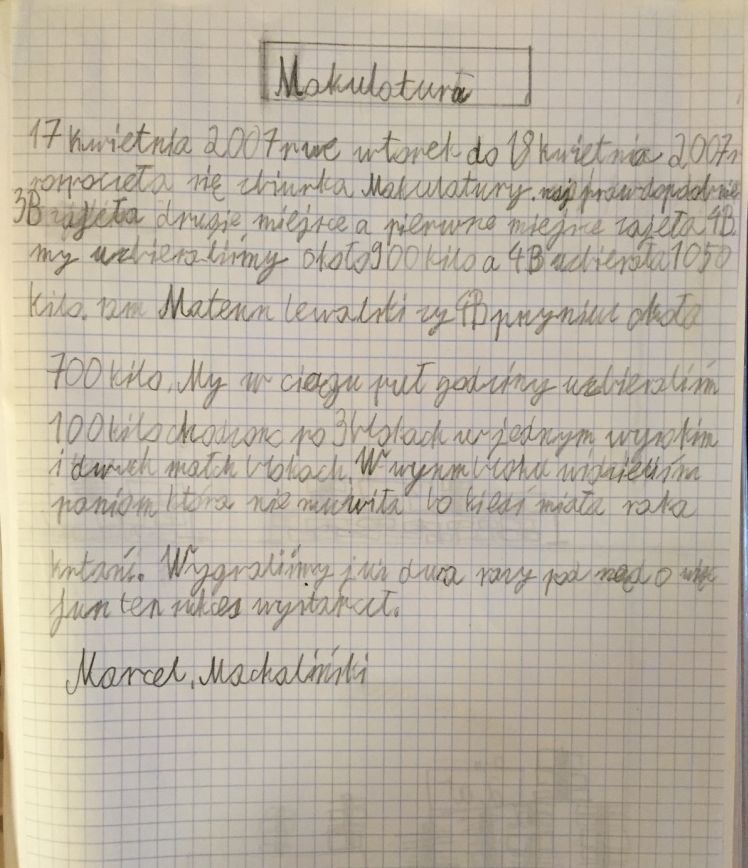 Makulatura
17 kwietnia 2007r we wtorek do 18 kwietnia 2007r
rozpoczeła się zbiurka Makulatury. najprawdopodobnie
3B zajeła drugie miejsce a pierwsze miejsce zajeła 4B.
my uzbieraliśmy około 900 kilo a 4B uzbierała 1050
kilo. sam Lewalski zy 4B przyniuc okoła
700 kilo. My w ciągu puł godziny uzbieraliśm
100 kilo chodzonc po 3 blokach w jednym wysokim
i dwuch małch blokach. W wysnm bloku widzieliśm
paniom ktura nie muwiła bo kiedś miała raka
krtani. Wygraliśmy już dwa razy pod rząd o więc
ten sukces wystarczł.
Marcel, Machaliński